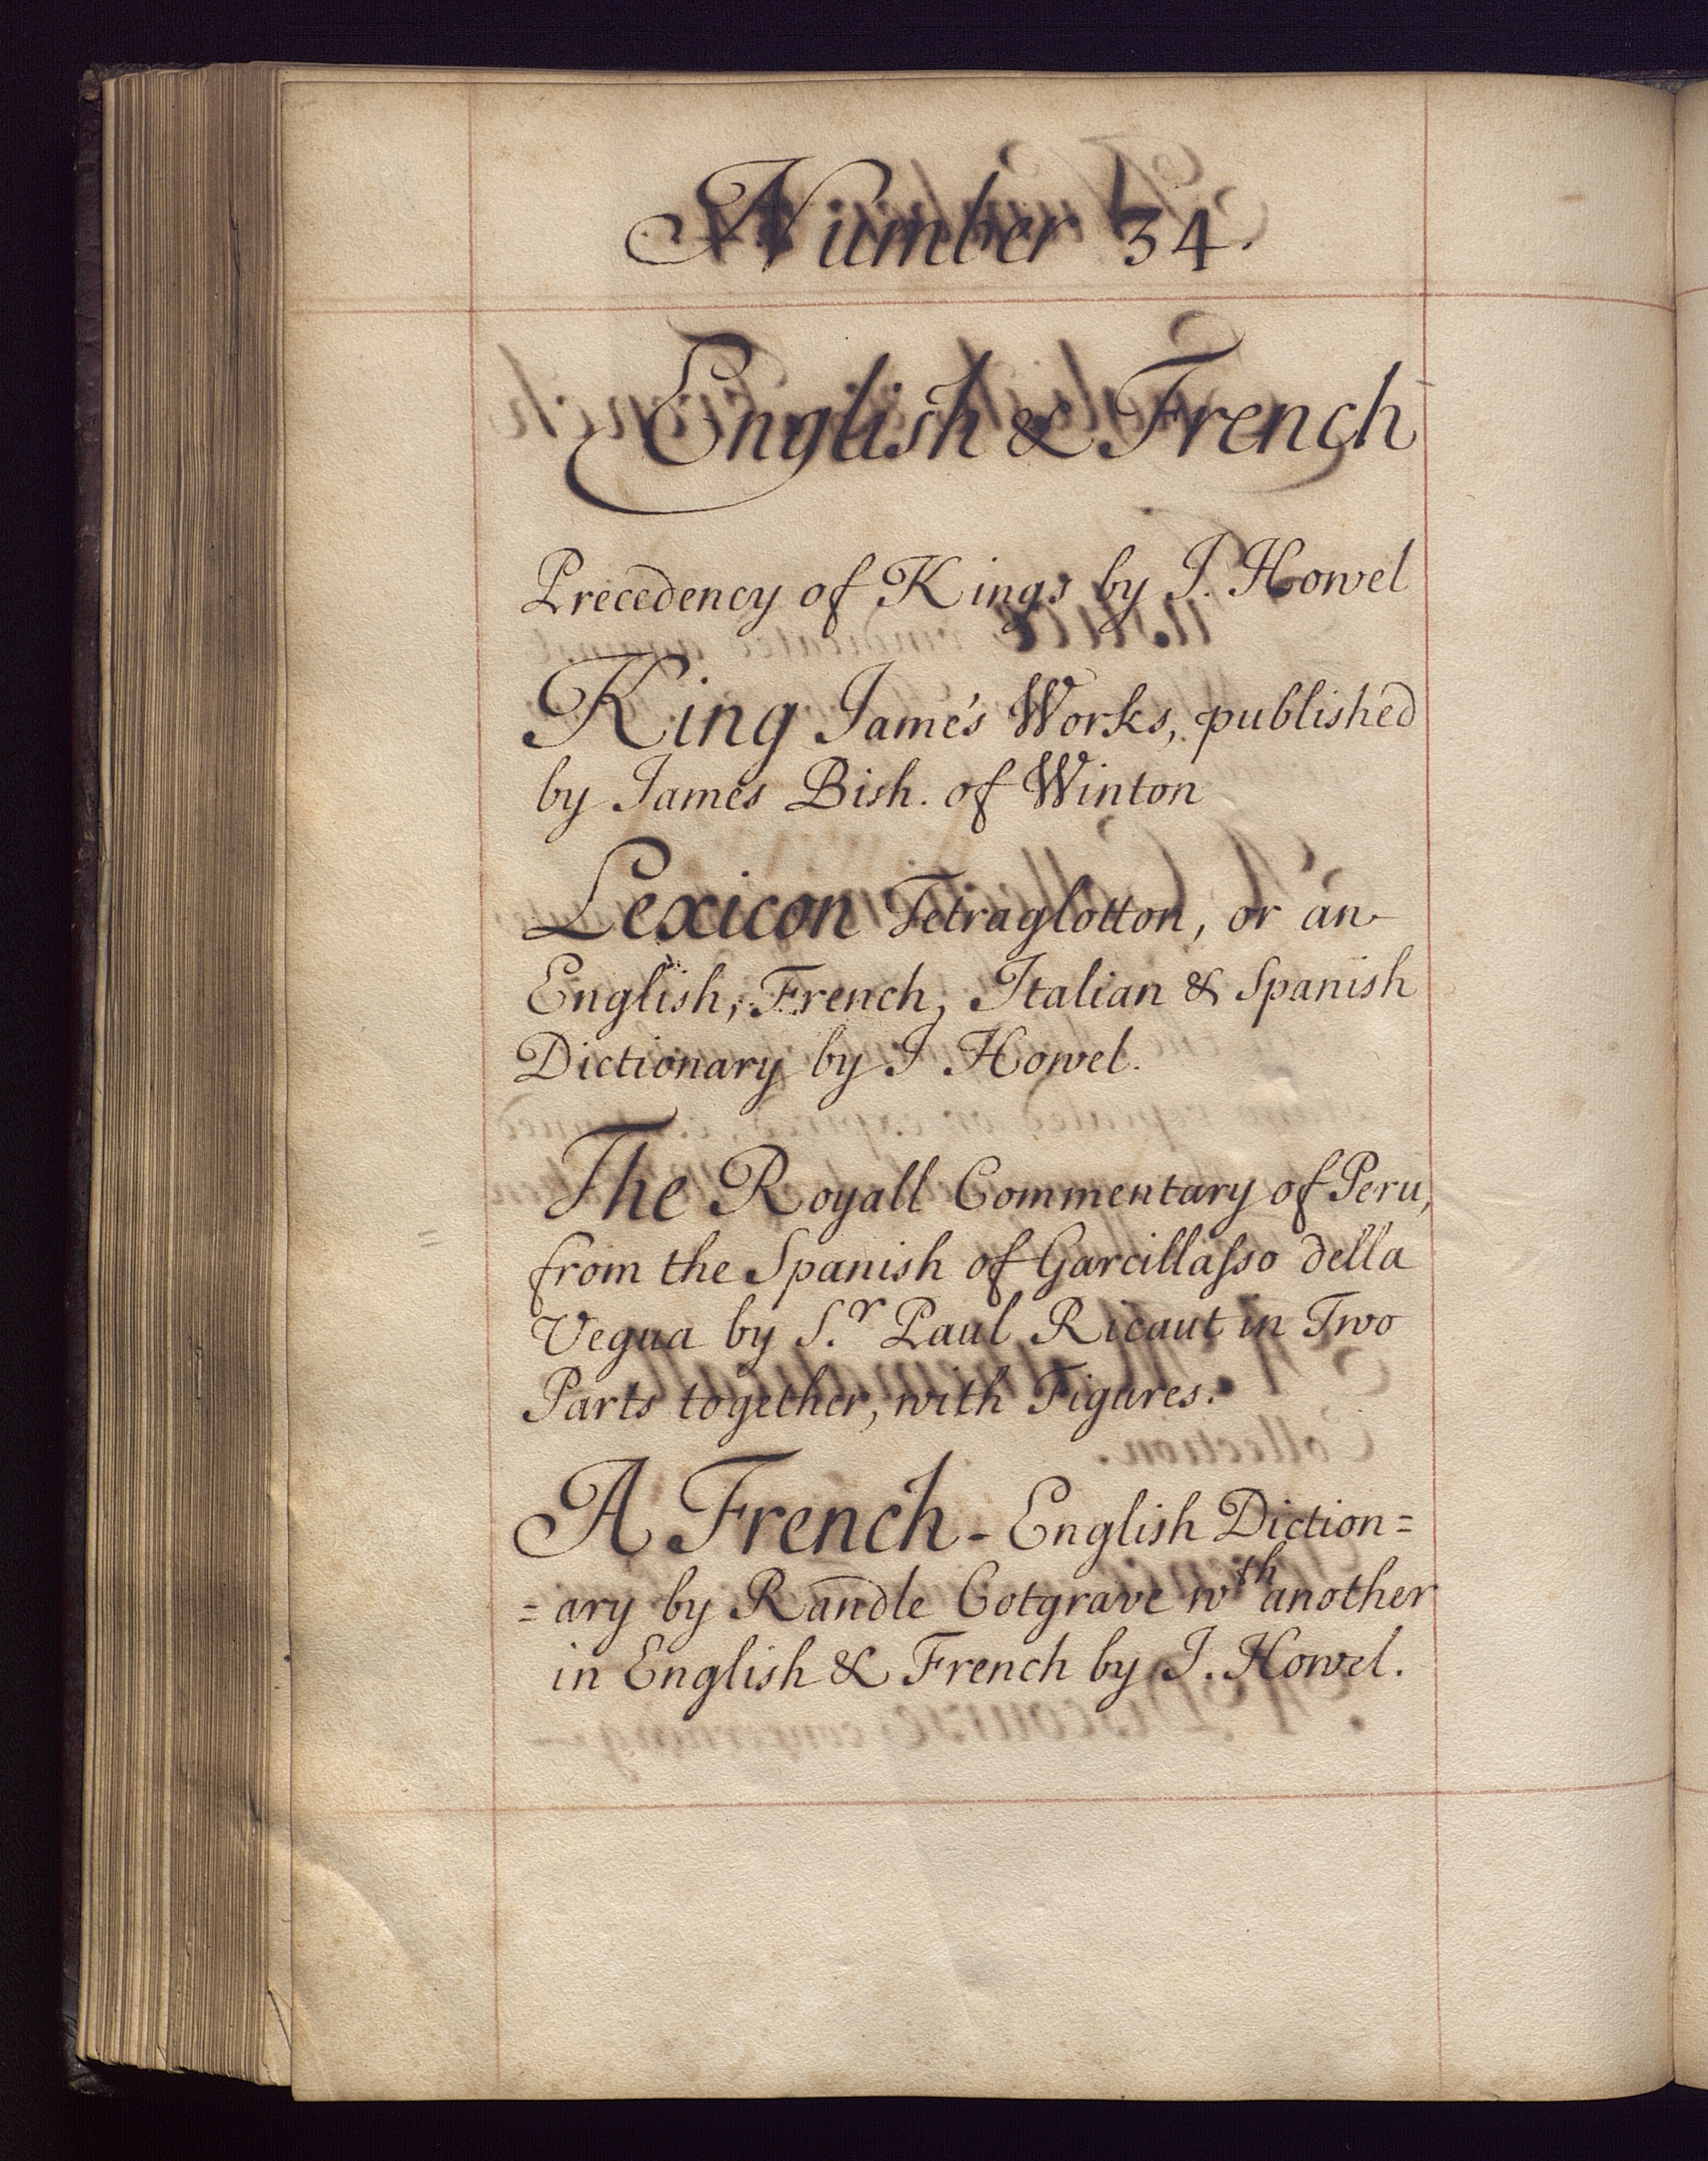 Number 34.
English & French
Precedency of Kings by J. Howel
King Jame's Works, published
by James Bish. of Winton
Lexicon Tetraglotton, or an
English, French, Italian & Spanish
Dictionary by J Howel.
The Royall Commentary of Peru,
from the Spanish of Garcillaſso della
Vegua by S.r Paul Ricaut in Two
Parts together, with Figures.
A French - English Diction=
=ary by Randle Cotgrave wth another
in English & French by J. Howel.